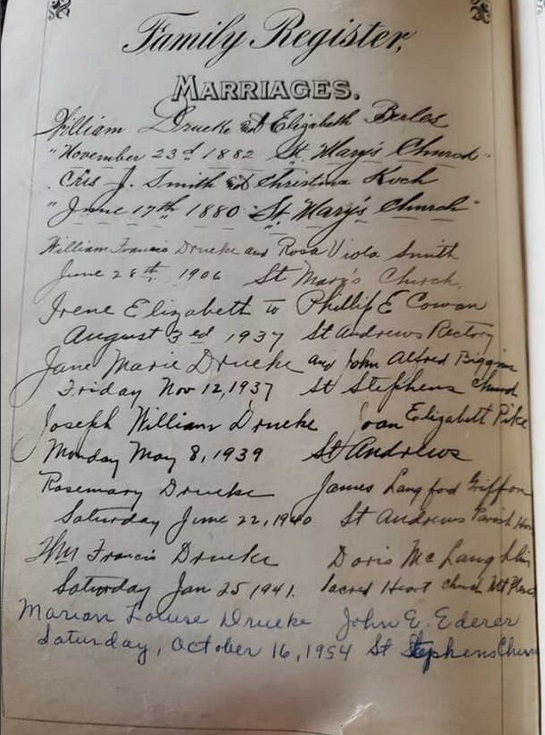 Family Register,
MARRIAGES.
William Drucke & Elizabeth Berles
"November 23d 1882 St. Mary's Church"
Cris J. Smith & Christina Koch
"June 17th 1880 St. Mary's Church"
William Francis Drueke and Rosa Viola Smith
June 28th, 1906 St Mary's Church.
Irene Elizabeth to Phillip E Cowan
August 3ed 1937 St Andrews Rectory
Jane Marie Drueke and John Alfred
Friday Nov 12, 1937 St Stephens Church
Joseph William Drueke Joan Elizabeth Pike
Monday May 8, 1939 St Andrews
Rosemary Drueke James Langford Giffon
Saturday June 22, 1940 St Andrews Parish
Wm Francis Drueke Doris McLaughlin
Saturday Jan 25 1941. Sacred Heart Church
Marian Louise Drueke John E. Ederer
Saturday, October 16, 1954 St Stephens